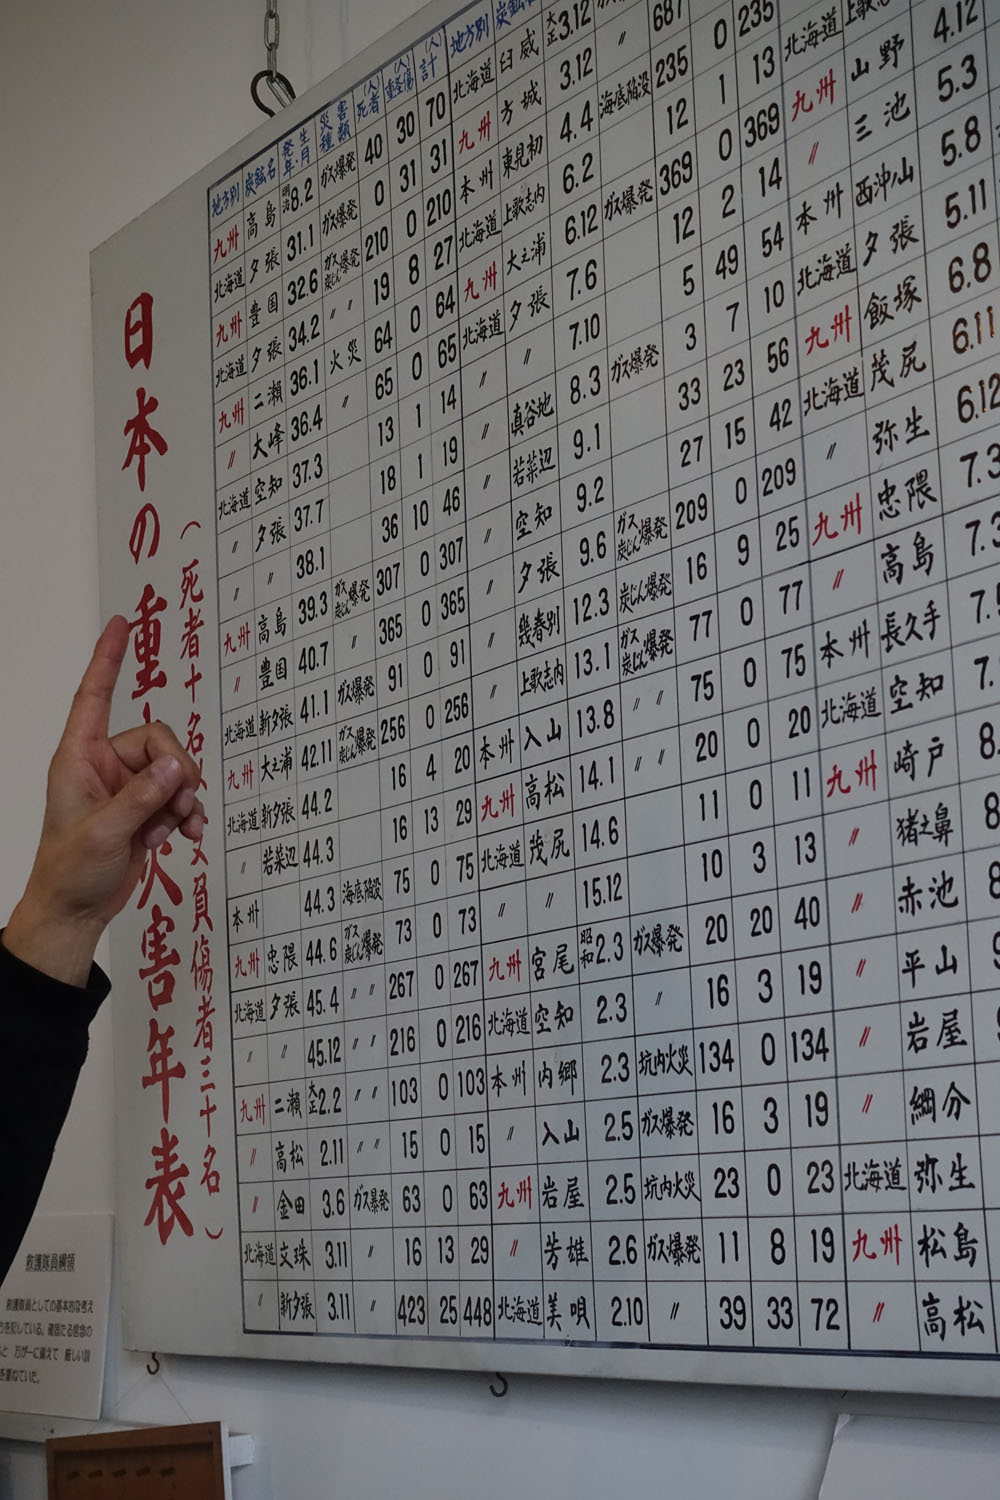 日本の重
災害年表
（死者十名以
負傷者三十名）
地方別 炭鉱名 発生年・月 災害種類 死者(人) 重軽傷(人) 計(人) 地方別
九州 高島 明治8.2 ガス爆発 40 30 70 北海道 臼威 大正3.12
北海道 夕張 31.1 ガス爆発 0 31 31 九州 方城 3.12 〃 687
九州 豊国 32.6 ガス炭じん爆発 210 0 210 本州 東見初 4.4 海底陥没 235 0 235
北海道 夕張 34.2 〃 〃 19 8 27 北海道 上歌志内 6.2 12 1 13 北海道 上歌志
九州 二瀬 36.1 火災 64 0 64 九州 大之浦 6.12 ガス爆発 369 0 369 九州 山野 4.12
〃 大峰 36.4 〃 65 0 65 北海道 夕張 7.6 12 2 14 〃 三池 5.3
北海道 空知 37.3 13 1 14 〃 〃 7.10 5 49 54 本州 西沖ノ山 5.8
〃 夕張 37.7 18 1 19 〃 真谷地 8.3 ガス爆発 3 7 10 北海道 夕張 5.11
〃 〃 38.1 36 10 46 〃 若菜辺 9.1 33 23 56 九州 飯塚 6.8
九州 高島 39.3 ガス炭じん爆発 307 0 307 〃 空知 9.2 27 15 42 北海道 茂尻 6.11
〃 豊国 40.7 〃 365 0 365 〃 夕張 9.6 ガス炭じん爆発 209 0 209 〃 弥生 6.12
北海道 新夕張 41.1 ガス爆発 91 0 91 〃 幾春別 12.3 炭じん爆発 16 9 25 九州 忠隈 7.3
九州 大之浦 42.11 ガス炭じん爆発 256 0 256 〃 上歌志内 13.1 ガス炭じん爆発 77 0 77 〃 高島 7.3
北海道 新夕張 44.2 16 4 20 本州 入山 13.8 〃 〃 75 0 75 本州 長久手
〃 若菜辺 44.3 16 13 29 九州 高松 14.1 〃 〃 20 0 20 北海道 空知 7.
本州 44.3 海底陥没 75 0 75 北海道 茂尻 14.6 11 0 11 九州 崎戸 8.
九州 忠隈 44.6 ガス炭じん爆発 73 0 73 〃 〃 15.12 10 3 13 〃 猪之鼻
北海道 夕張 45.4 〃 〃 267 0 267 九州 宮尾 昭和2.3 ガス爆発 20 20 40 〃 赤池
〃 〃 45.12 〃 〃 216 0 216 北海道 空知 2.3 〃 16 3 19 〃 平山
九州 二瀬 大正2.2 〃 〃 103 0 103 本州 内郷 2.3 坑内火災 134 0 134 〃 岩屋
〃 高松 2.11 〃 〃 15 0 15 〃 入山 2.5 ガス爆発 16 3 19 〃 綱分
〃 金田 3.6 ガス爆発 63 0 63 九州 岩屋 2.5 坑内火災 23 0 23 北海道 弥生
北海道 文珠 3.11 〃 16 13 29 〃 芳雄 2.6 ガス爆発 11 8 19 九州 松島
〃 新夕張 3.11 〃 423 25 448 北海道 美唄 2.10 〃 39 33 72 〃 高松
救護隊員綱領
救護隊員としての基本的な考え
を記している。確固たる信念の
と 万が一に備えて 厳しい訓
を重ねていた。